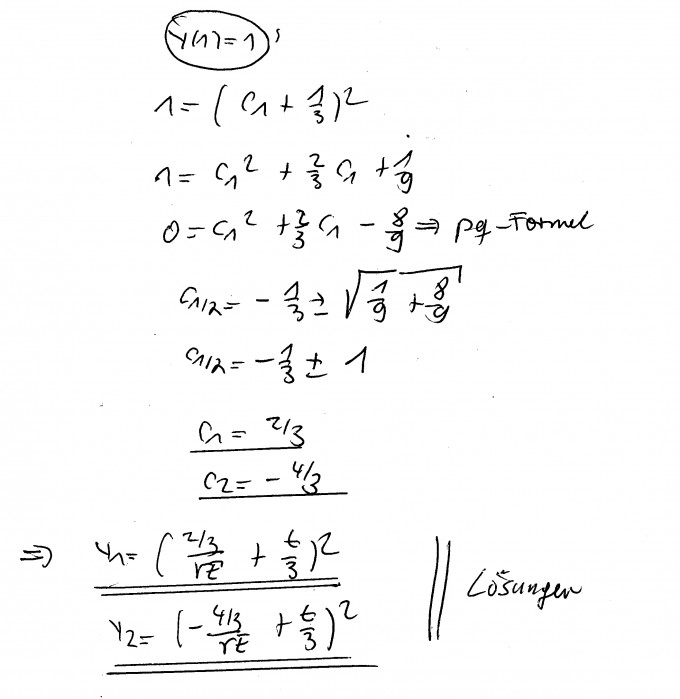 y(1)=1
1 = (C₁ + 1/3)²
1 = C₁² + 2/3 C₁ + 1/9
0 = C₁² + 2/3 C₁ - 8/9 ⇒ pq-Formel
C₁/₂ = - 1/3 ± √(1/9 + 8/9)
C₁/₂ = - 1/3 ± 1
C₁ = 2/3
C₂ = - 4/3
⇒ y₁ = ((2/3)/√t + t/3)²
y₂ = (- (4/3)/√t + t/3)² || Lösungen